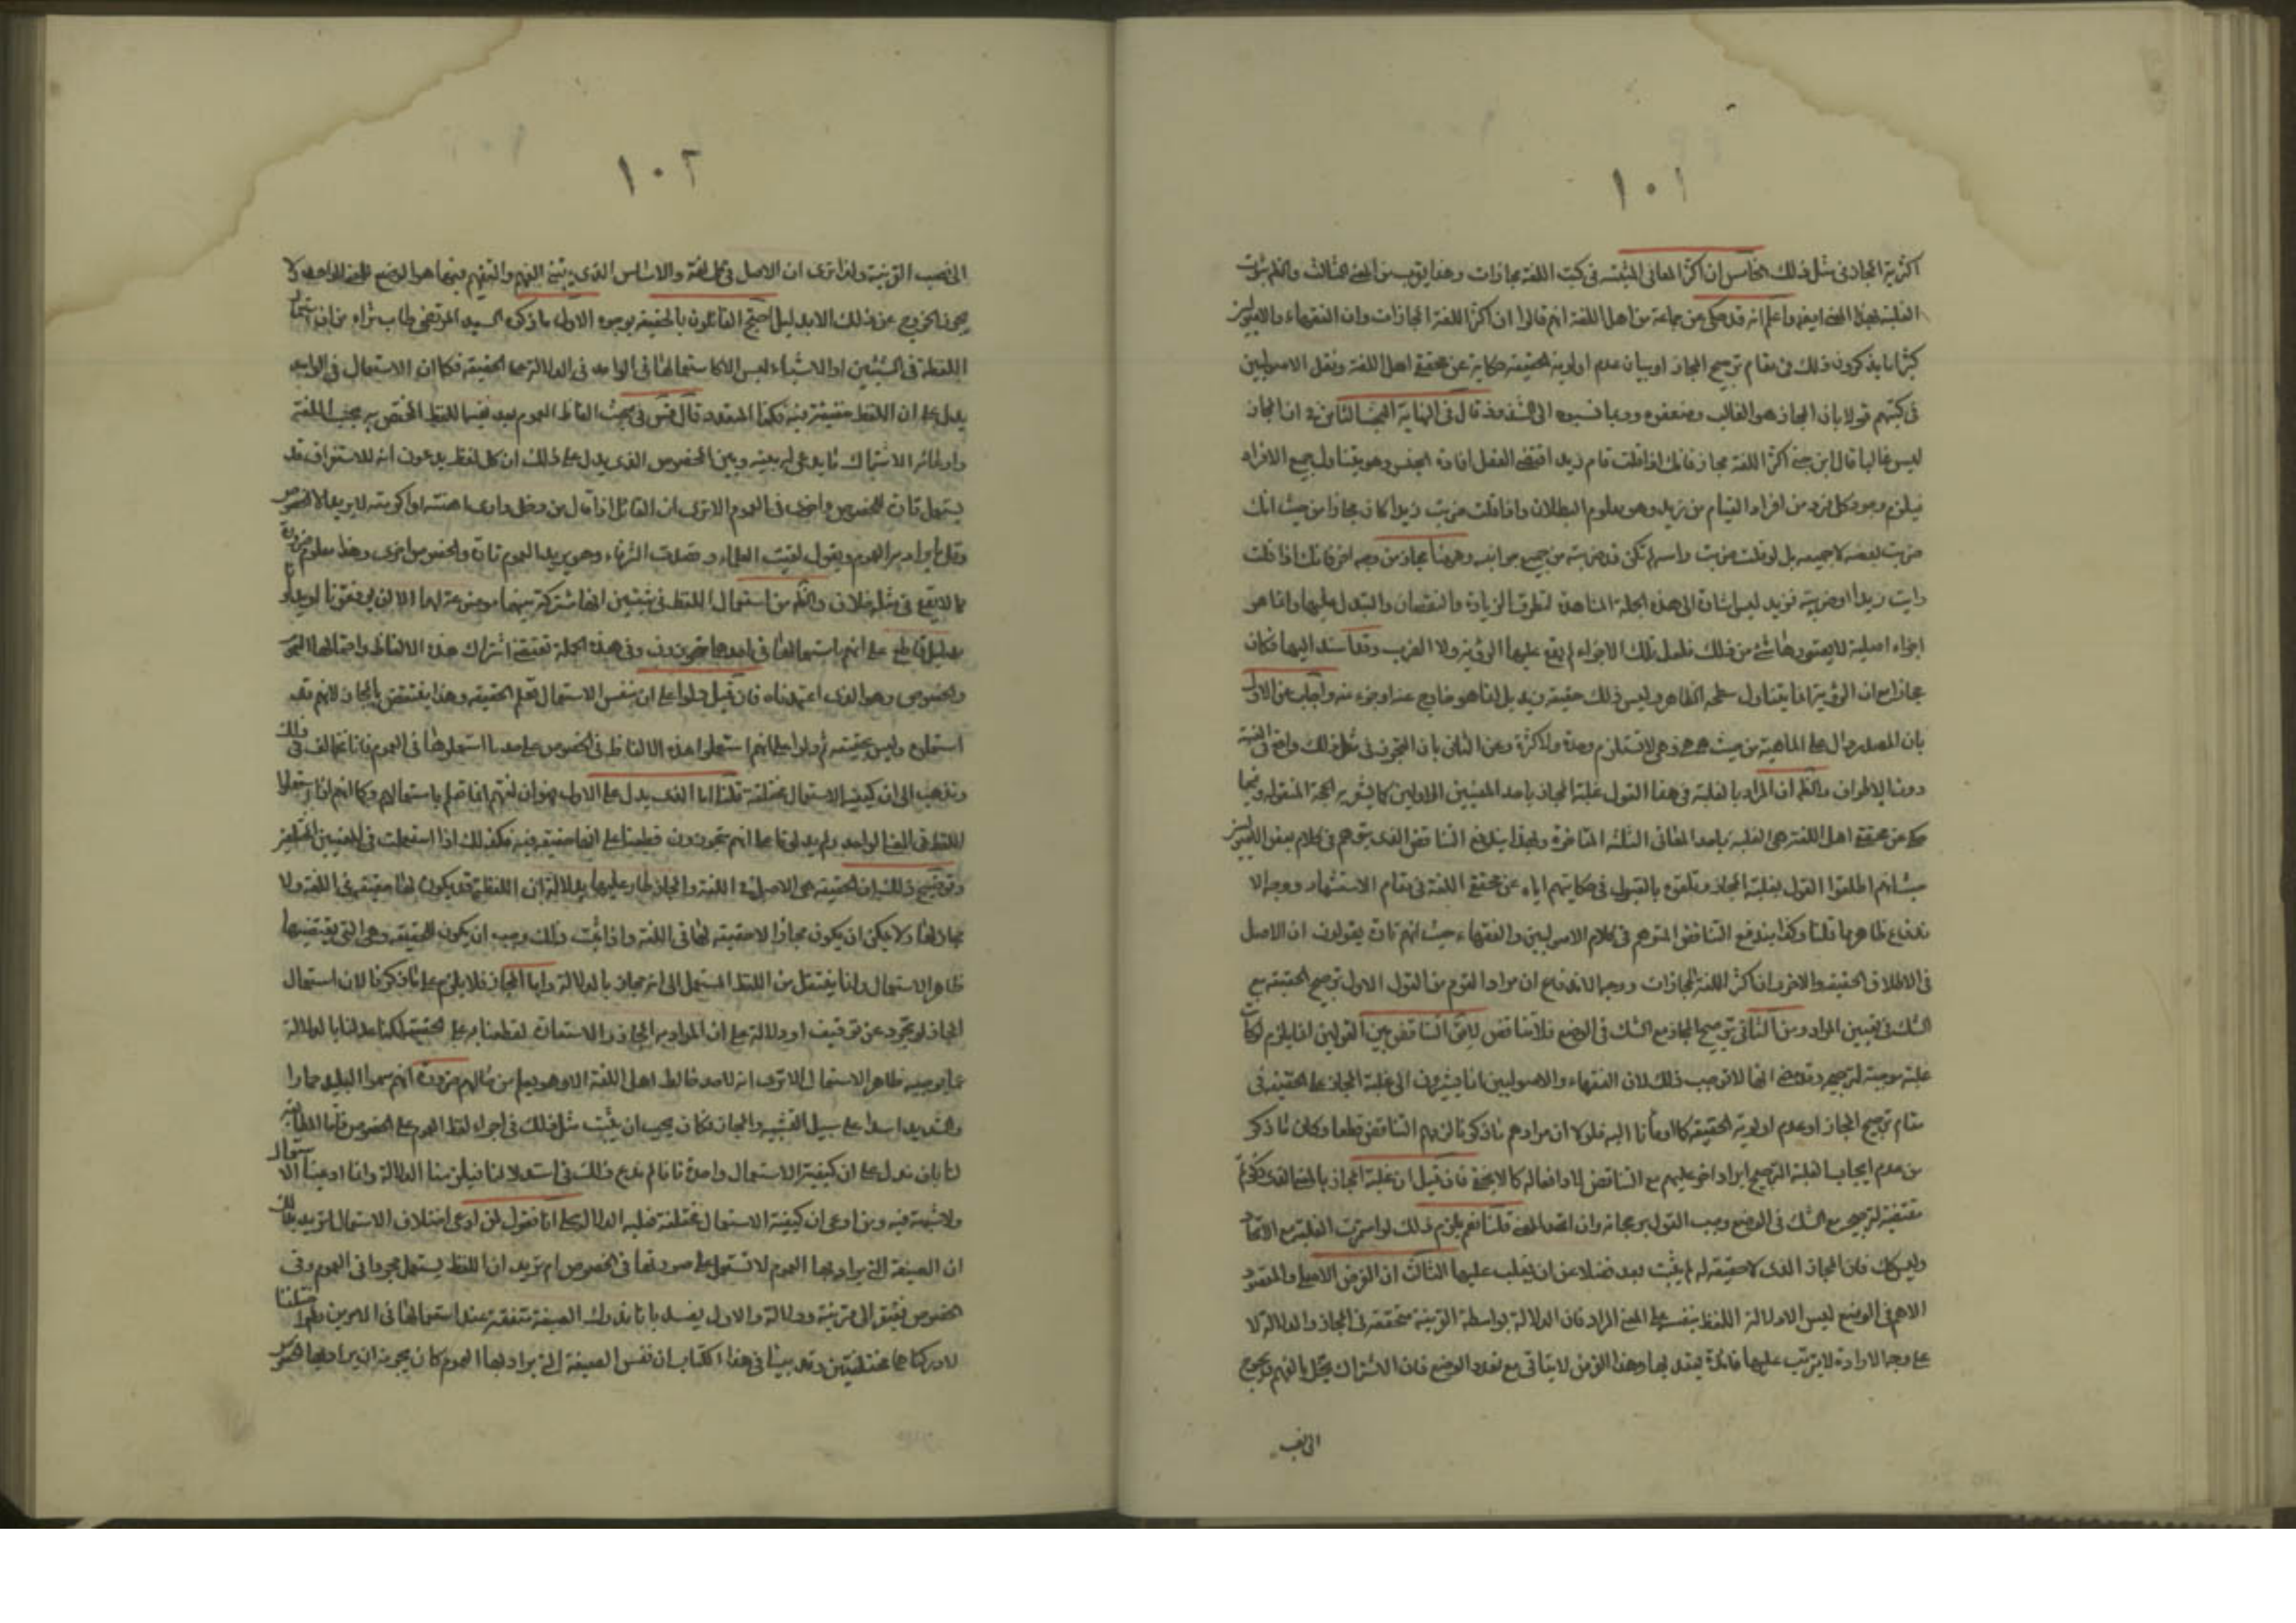 ١٠١
اكثرية المجاز في مثل ذلك الخامس ان اكثر المعاني المثبتة في كتب اللغة مجازات وهذا يقرب من المعنى الثالث والظاهر ثبوت
الغلبة بهذا المعنى ايضا واعلم انه قد حكى عن جماعة من اهل اللغة انهم قالوا ان اكثر اللغة المجازات وان الفقهاء والاصوليين
كثيرا ما يذكرون ذلك في مقام ترجيح المجاز او بيان عدم اولوية الحقيقة حكاية عن محققي اهل اللغة ونقل الاصوليين
في كتبهم قولا بان المجاز هو الغالب وضعفوه وربما نسبوه الى الشذوذ قال في النهاية البحث الثامن في ان المجاز
ليس غالبا قال ابن جني اكثر اللغة مجاز فانك اذا قلت قام زيد اقتضى الفعل افادة الجنس وهو يتناول جميع الافراد
فيلزم وجود كل فرد من افراد القيام من زيد وهو معلوم البطلان واذا قلت ضربت زيدا كان مجازا من حيث انك
ضربت بعضه لا جميعه بل لو قلت ضربت راسه لم تكن قد ضربته من جميع جوانبه وهنا مجاز من وجه اخر فانك اذا قلت
رايت زيدا او ضربته فزيد ليس اشارة الى هذه الجملة المشاهدة لتطرق الزيادة والنقصان والتبدل عليها وانما هو
اجزاء اصلية لا يعتورها شئ من ذلك فلعل تلك الاجزاء لم يقع عليها الرؤية ولا الضرب وقد اسند اليها فكان
مجازا مع ان الرؤية انما يتناول سطحه الظاهر وليس ذلك حقيقة زيد بل انما هو خارج عنه او جزء منه واجاب عن الاول
بان المصدر دال على الماهية من حيث هي هي وهي لا تستلزم وحدة ولا كثرة وعن الثاني بان التجوز في مثل ذلك واقع في النسبة
دون الاطراف والظاهر ان المراد بالغلبة في هذا القول غلبة المجاز باحد المعنيين الاولين كما يشعر به الحجة المنقولة وفيما
حكي عن محققي اهل اللغة هي الغلبة باحد المعاني الثلثة المتاخرة وبهذا يندفع التناقض الذي يتوهم في كلام بعض الاصوليين
حيث انهم اطلقوا القول بغلبة المجاز وتلقوه بالقبول في حكايتهم اياه عن محققي اللغة في مقام الاستشهاد ووجه الا
ندفاع ظاهر بما قلنا وكذا يندفع التناقض المتوهم في كلام الاصوليين والفقهاء حيث انهم تارة يقولون ان الاصل
في الاطلاق الحقيقة والاخرى ان اكثر اللغة المجازات ووجه الاندفاع ان مراد القوم من القول الاول ترجيح الحقيقة مع
الشك في تعيين المراد ومن الثاني ترجيح المجاز مع الشك في الوضع فلا تناقض بين القولين انما يلزم لو كان
غلبة موجبة لترجيحه وقد مضى انها لا توجب ذلك لان الفقهاء والاصوليين انما يشيرون الى غلبة المجاز على الحقيقة في
مقام ترجيح المجاز او عدم اولوية الحقيقة كما اومأنا اليه فلولا ان مرادهم ما ذكرنا لزمهم التناقض قطعا وكان ما ذكر
من عدم ايجاب الغلبة الترجيح ايراد اخر عليهم مع التناقض كما لا يخفى فان قيل ان غلبة المجاز بالمعنى الذي ذكرتم
مقتضية لترجيحه مع الشك في الوضع وجب القول برجحانه وان اتحد المعنى قلنا نعم يلزم ذلك لو استمرت الغلبة مع الاتحاد
وليس كك فان المجاز الذي لا حقيقة له لم يثبت بعد فضلا عن ان يغلب عليها الثالث ان الغرض الاصلي والمقصود
الاهم في الوضع ليس الا دلالة اللفظ بنفسه على المعنى المراد فان الدلالة بواسطة القرينة متحققة في المجاز والدلالة لا
على وجه الارادة لا يترتب عليها فائدة يعتد بها وهذا الغرض لا يتاتى مع تعدد الوضع فان الاشتراك يخل بالفهم ويحوج
الى نصب
١٠٢
الى نصب القرينة ولذا ترى ان الاصل في كل لغة والاساس الذي يبتنى الفهم والتفهيم فيها هو الوضع للمعنى الواحد ولا
يجوز الخروج عن ذلك الا بدليل احتج القائلون بالحقيقة بوجوه الاول ما ذكره السيد المرتضى طاب ثراه من ان استعمال
اللفظة في الشيئين او الاشياء ليس الا كاستعمالها في الواحد في الدلالة على الحقيقة فكما ان الاستعمال في الواحد
يدل على ان اللفظ حقيقة فيه فكذا المتعدد قال قدس في مبحث الفاظ العموم بعد نفيه اللفظ المختص به بحسب اللغة
وادعائه الاشتراك ما يدعى لربيعة وبين الخصوص الذي يدل على ذلك ان كل لفظ يدعون انه للاستغراق قد
يستعمل تارة للخصوص واخرى في العموم الا ترى ان القائل اذا قال من دخل داري اهنته او اكرمته لا يريد الا الخصوص
وقل ما يراد به العموم ويقول لقيت العلماء وقصدت الشرفاء وهو يريد العموم تارة والخصوص اخرى وهذا معلوم ضرورة
مما لا يقع في مثله خلاف والظاهر من استعمال اللفظة في شيئين انها مشتركة بينهما موضوعة لهما الا ان يوقفونا او يدلونا
بدليل قاطع على انهم باستعمالها في احدهما متجوزون وفي هذه الجملة تقتضي اشتراك هذه الالفاظ واحتمالها العموم
والخصوص وهو الذي اعتمدناه فان قيل دلوا على ان بنفس الاستعمال تعلم الحقيقة وهذا ينتقض بالمجاز لانهم قد
استعملوه وليس بحقيقة ثم دلوا على انهم استعملوا هذه الالفاظ في الخصوص على حد ما استعملوها في العموم فانا نخالف في ذلك
ونذهب الى ان كيفية الاستعمال مختلفة قلنا اما الذي يدل على الاول فهو ان لغتهم انما تعلم باستعمالهم وكما انهم اذا استعملوا
اللفظة في المعنى الواحد ولم يدلونا على انهم متجوزون قطعنا على انها حقيقة فيه فكذلك اذا استعملت في المعنيين المختلفين
وتوضيح ذلك ان الحقيقة هي الاصل في اللغة والمجاز طار عليها بدلالة ان اللفظة قد يكون لها حقيقة في اللغة ولا
مجاز لها ولا يمكن ان يكون مجاز الا حقيقة لها في اللغة واذا ثبت ذلك وجب ان يكون الحقيقة وهي التي يقتضيها
ظاهر الاستعمال وانما ينتقل من اللفظ المستعمل الى انه مجاز بالدلالة واما المجاز فلا يلزم على ما ذكرنا لان استعمال
المجاز لو تجرد عن توقيف او دلالة على ان المراد به المجاز والاستعارة لقطعنا به على الحقيقة لكنا عدلنا بالدلالة
عما يوجبه ظاهر الاستعمال الا ترى انه لا احد خالط اهل اللغة الا وهو يعلم من حالهم ضرورة انهم سموا البليد حمارا
والشديد اسدا على سبيل التشبيه والمجاز فكان يجب ان يثبت مثل ذلك في اجراء لفظ العموم على الخصوص فاما المطالبة
لنا بان ندل على ان كيفية الاستعمال واحدة فانا لم ندع ذلك في استدلالنا فيلزمنا الدلالة وانما ادعينا الاستعمال
ولا شبهة فيه ومن ادعى ان كيفية الاستعمال مختلفة فعليه الدلالة على انا نقول لمن ادعى اختلاف الاستعمال اتريد بذلك
ان الصيغة التي يراد بها العموم لا تستعمل على صورتها في الخصوص ام تريد ان اللفظ يستعمل مجردا في العموم وفي
الخصوص يفتقر الى قرينة ودلالة والاول يفسد بانا ندرك الصيغة متفقة عند استعمالها في الامرين ولو اختلفا
لادركناهما مختلفين وقد بينا في هذا الكتاب ان نفس الصيغة التي يراد بها العموم كان يجوز ان يراد بها الخصوص